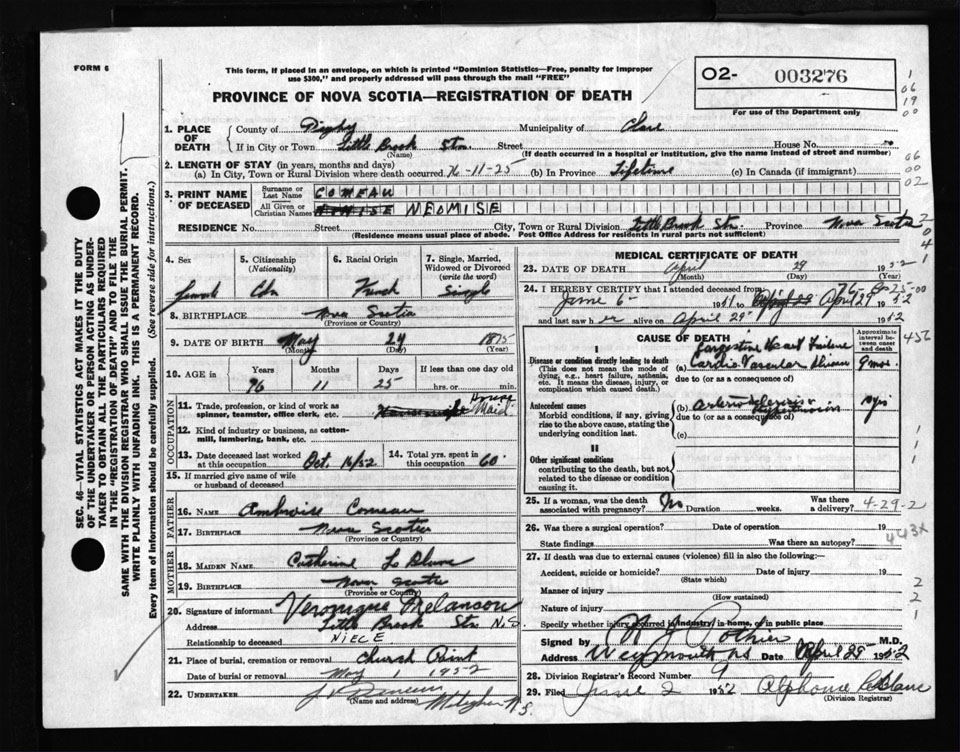 FORM 6
This form, if placed in an envelope, on which is printed "Dominion Statistics—Free, penalty for improper
use $300," and properly addressed will pass through the mail "FREE"
O2- 003276
For use of the Department only
PROVINCE OF NOVA SCOTIA—REGISTRATION OF DEATH
1. PLACE OF DEATH
County of Digby Municipality of Clare
If in City or Town Little Brook Stn Street House No.
(Name) (If death occurred in a hospital or institution, give the name instead of street and number)
2. LENGTH OF STAY (in years, months and days)
(a) In City, Town or Rural Division where death occurred 76-11-25 (b) In Province Lifetime (c) In Canada (if immigrant)
3. PRINT NAME OF DECEASED
Surname or Last Name COMEAU
All Given or Christian Names NEOMISE
RESIDENCE No. Street City, Town or Rural Division Little Brook Stn. Province Nova Scotia
(Residence means usual place of abode. Post Office Address for residents in rural parts not sufficient)
4. Sex 5. Citizenship (Nationality) 6. Racial Origin 7. Single, Married, Widowed or Divorced (write the word)
female Cdn French Single
8. BIRTHPLACE Nova Scotia
(Province or Country)
9. DATE OF BIRTH May 24 1875
(Month) (Day) (Year)
10. AGE in Years Months Days If less than one day old
76 11 25 hrs. or min.
OCCUPATION
11. Trade, profession, or kind of work as spinner, teamster, office clerk, etc. House Maid
12. Kind of industry or business, as cotton-mill, lumbering, bank, etc.
13. Date deceased last worked at this occupation Oct. 14. Total yrs. spent in this occupation 60
15. If married give name of wife or husband of deceased
FATHER
16. NAME Ambroise Comeau
17. BIRTHPLACE Nova Scotia
(Province or Country)
MOTHER
18. MAIDEN NAME Catherine Le Blanc
19. BIRTHPLACE Nova Scotia
(Province or Country)
20. Signature of informant Veronique Melanson
Address Little Brook Stn N.S.
Relationship to deceased NIECE
21. Place of burial, cremation or removal Church Point
Date of burial or removal May 1 1952
22. UNDERTAKER Meteghan N.S.
(Name and address)
MEDICAL CERTIFICATE OF DEATH
23. DATE OF DEATH April 29 1952
(Month) (Day) (Year)
24. I HEREBY CERTIFY that I attended deceased from
June 6 1951 April 29 1952
and last saw her alive on April 29 1952
CAUSE OF DEATH
Approximate interval between onset and death
I
Disease or condition directly leading to death
(This does not mean the mode of dying, e.g., heart failure, asthenia, etc. It means the disease, injury, or complication which caused death.)
(a) Congestive Heart Failure
Cardio Vascular Disease 9 mos.
due to (or as a consequence of)
Antecedent causes
Morbid conditions, if any, giving rise to the above cause, stating the underlying condition last.
(b) Arteriosclerosis + Hypertension yrs
due to (or as a consequence of)
(c)
II
Other significant conditions
contributing to the death, but not related to the disease or condition causing it.
25. If a woman, was the death associated with pregnancy? No Duration weeks. Was there a delivery?
4-29-2
26. Was there a surgical operation? Date of operation 19
State findings Was there an autopsy?
443X
27. If death was due to external causes (violence) fill in also the following:—
Accident, suicide or homicide? Date of injury 19
(State which)
Manner of injury
(How sustained)
Nature of injury
Specify whether injury occurred in industry, in home, or in public place
Signed by Pothier M.D.
Address Weymouth NS Date April 29 1952
28. Division Registrar's Record Number 9
29. Filed June 2 1952 Alphonse LeBlanc
(Division Registrar)
SEC. 46—VITAL STATISTICS ACT MAKES IT THE DUTY
OF THE UNDERTAKER OR PERSON ACTING AS UNDER-
TAKER TO OBTAIN ALL THE PARTICULARS REQUIRED
IN THE "REGISTRATION OF DEATH" AND TO FILE THE
SAME WITH THE DIVISION REGISTRAR WHO SHALL ISSUE THE BURIAL PERMIT.
WRITE PLAINLY WITH UNFADING INK. THIS IS A PERMANENT RECORD.
Every item of information should be carefully supplied. (See reverse side for instructions.)